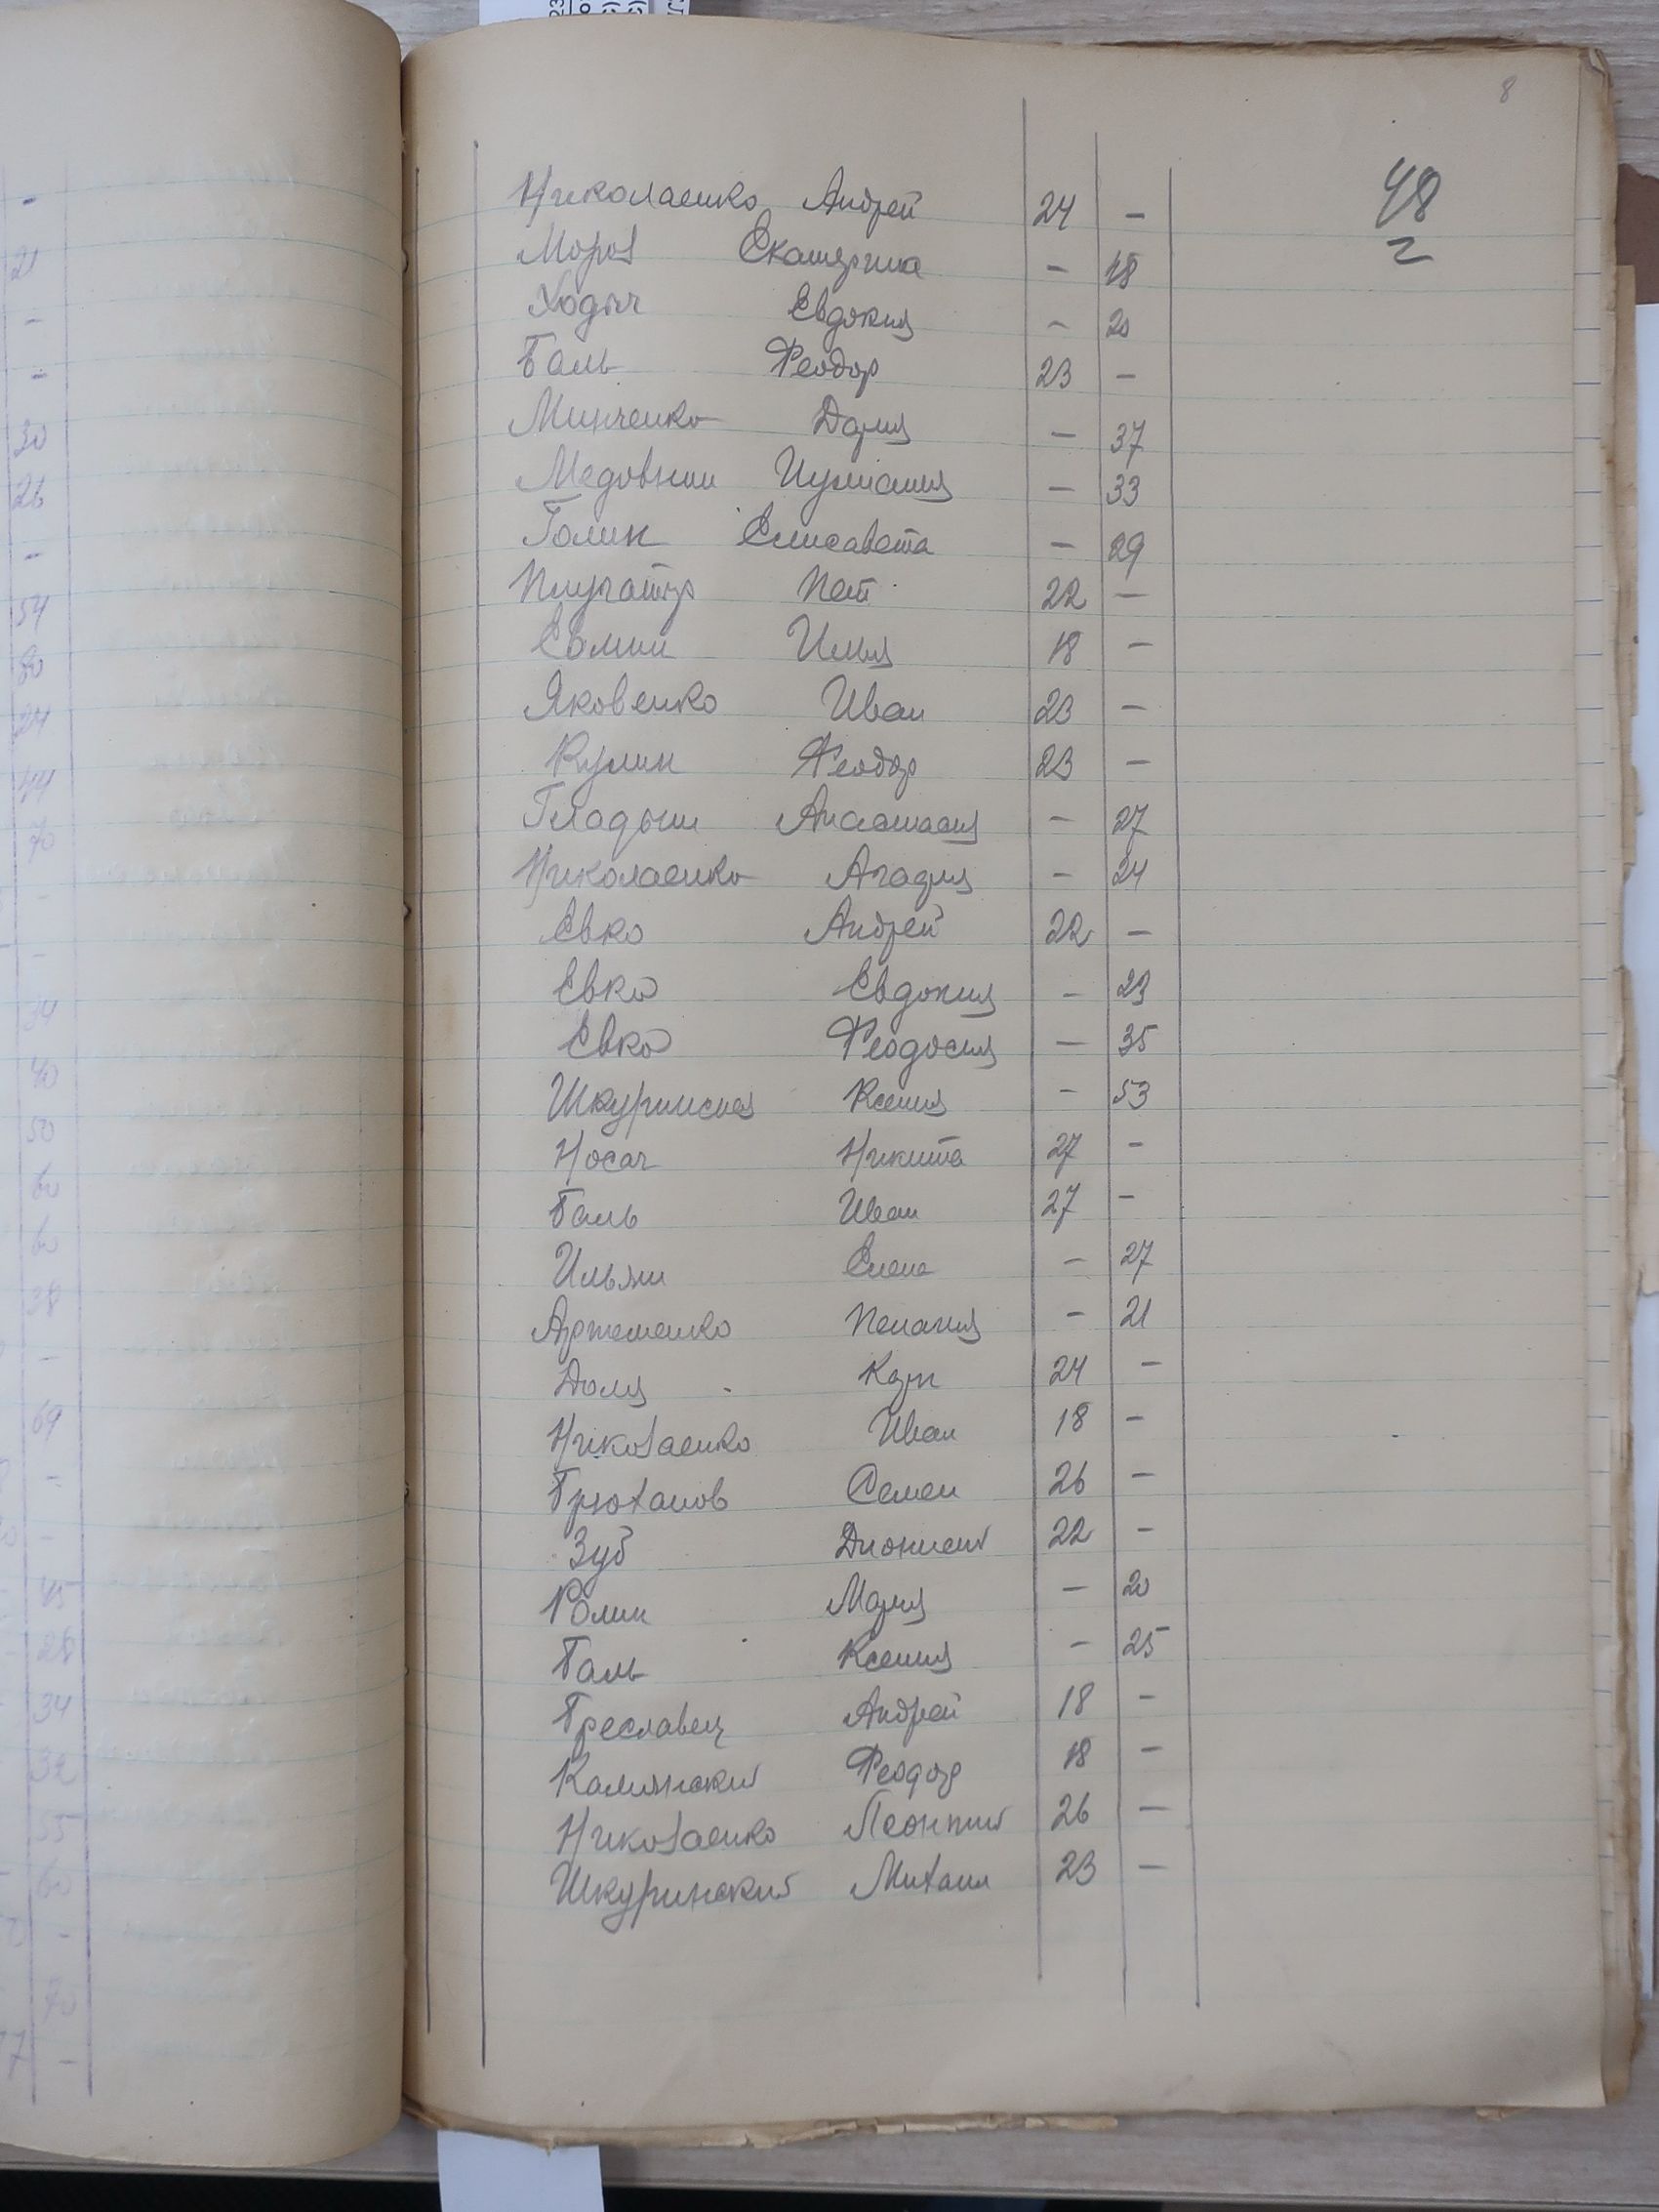 8
48
2
Николаенко Андрей 24 –
Мороз Екатерина – 18
Ходыч Евдокия – 20
Баль Феодор 23 –
Минченко Дария – 37
Медовник – 33
Голик Елисавета – 29
Плугатыр 22 –
Евмин Илья 18 –
Яковенко Иван 23 –
Кулик Феодор 23 –
Гладыш Анастасия – 27
Николаенко Агафия – 24
Евко Андрей 22 –
Евко Евдокия – 23
Евко Феодосия – 35
Шкуринская Ксения – 53
Носач Никита 27 –
Баль Иван 27 –
Ильяш Елена – 27
Артеменко Пелагия – 21
Доля 24 –
Николаенко Иван 18 –
Брюханов Семен 26 –
Зуб Дионисий 22 –
Мария – 20
Баль Ксения – 25
Бреславец Андрей 18 –
Калинский Феодор 18 –
Николаенко Леонтий 26 –
Шкуринский Михаил 23 –